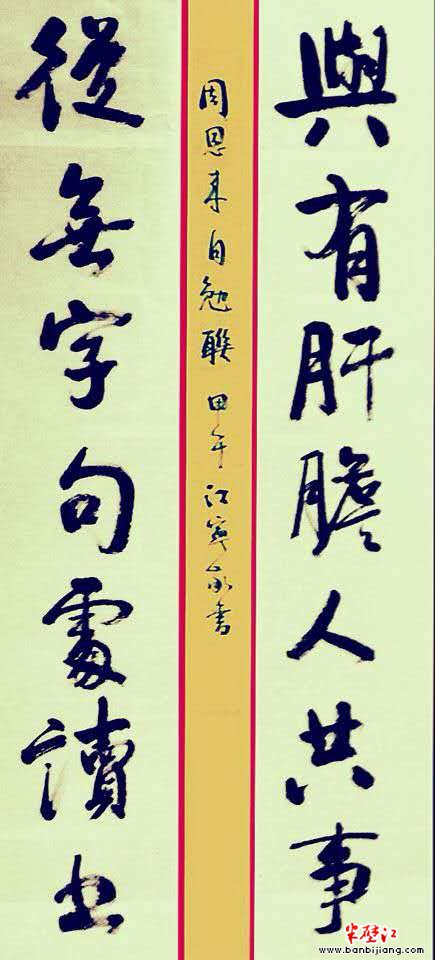 與有肝膽人共事
周恩来自勉聯 甲午 江寒永書
從無字句處讀书
半壁江
www.banbijiang.com